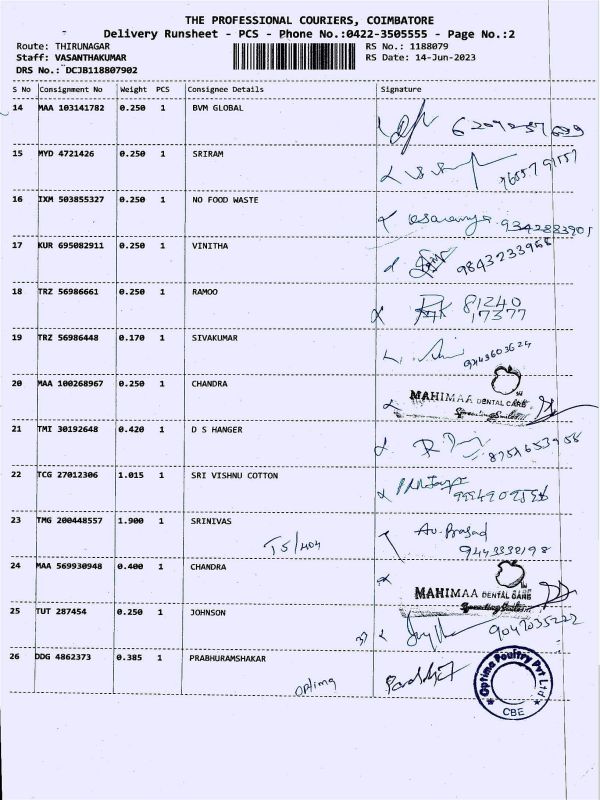 THE PROFESSIONAL COURIERS, COIMBATORE
Delivery Runsheet - PCS - Phone No.:0422-3505555 - Page No.:2
Route: THIRUNAGAR RS No.: 1188079
Staff: VASANTHAKUMAR RS Date: 14-Jun-2023
DRS No.: DCJB118807902
S No Consignment No Weight PCS Consignee Details Signature
14 MAA 103141782 0.250 1 BVM GLOBAL
15 MYD 4721426 0.250 1 SRIRAM
16 IXM 503855327 0.250 1 NO FOOD WASTE
17 KUR 695082911 0.250 1 VINITHA 9843233958
18 TRZ 56986661 0.250 1 RAMOO 81240
17377
19 TRZ 56986448 0.170 1 SIVAKUMAR
20 MAA 100268967 0.250 1 CHANDRA MAHIMAA DENTAL CARE
21 TMI 30192648 0.420 1 D S HANGER
22 TCG 27012306 1.015 1 SRI VISHNU COTTON
23 TMG 200448557 1.900 1 SRINIVAS Av. Prasad
T5/404 9443338198
24 MAA 569930948 0.400 1 CHANDRA
MAHIMAA DENTAL CARE
25 TUT 287454 0.250 1 JOHNSON 9047035222
26 DDG 4862373 0.385 1 PRABHURAMSHAKAR
Optima Optima Poultry Pvt Ltd
CBE